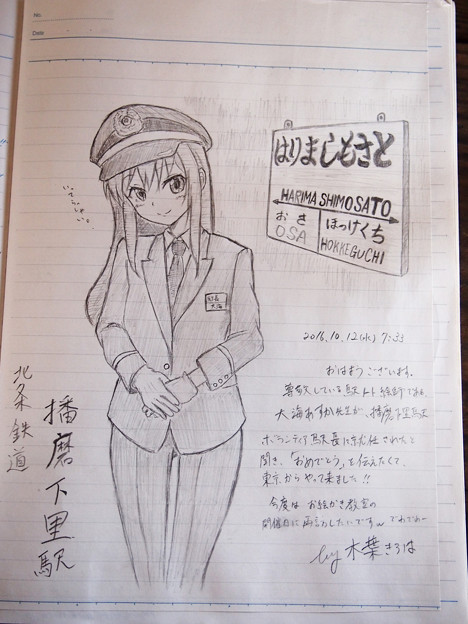 No.
Date
いってらっしゃい。
はりましもさと
HARIMA SHIMOSATO
おさ
OSA
ほっけくち
HOKKEGUCHI
駅長
大海
北条鉄道
播磨下里駅
2016.10.12(水) 7:33
おはようございます。
尊敬している駅ノート絵師である、
大海あすか先生が、播磨下里駅
ボランティア駅長に就任されたと
聞き、「おめでとう」を伝えたくて、
東京からやって来ました!!
今度は お絵かき教室の
開催日に再訪したいです〜 でわでわ〜
by 木葉きろは